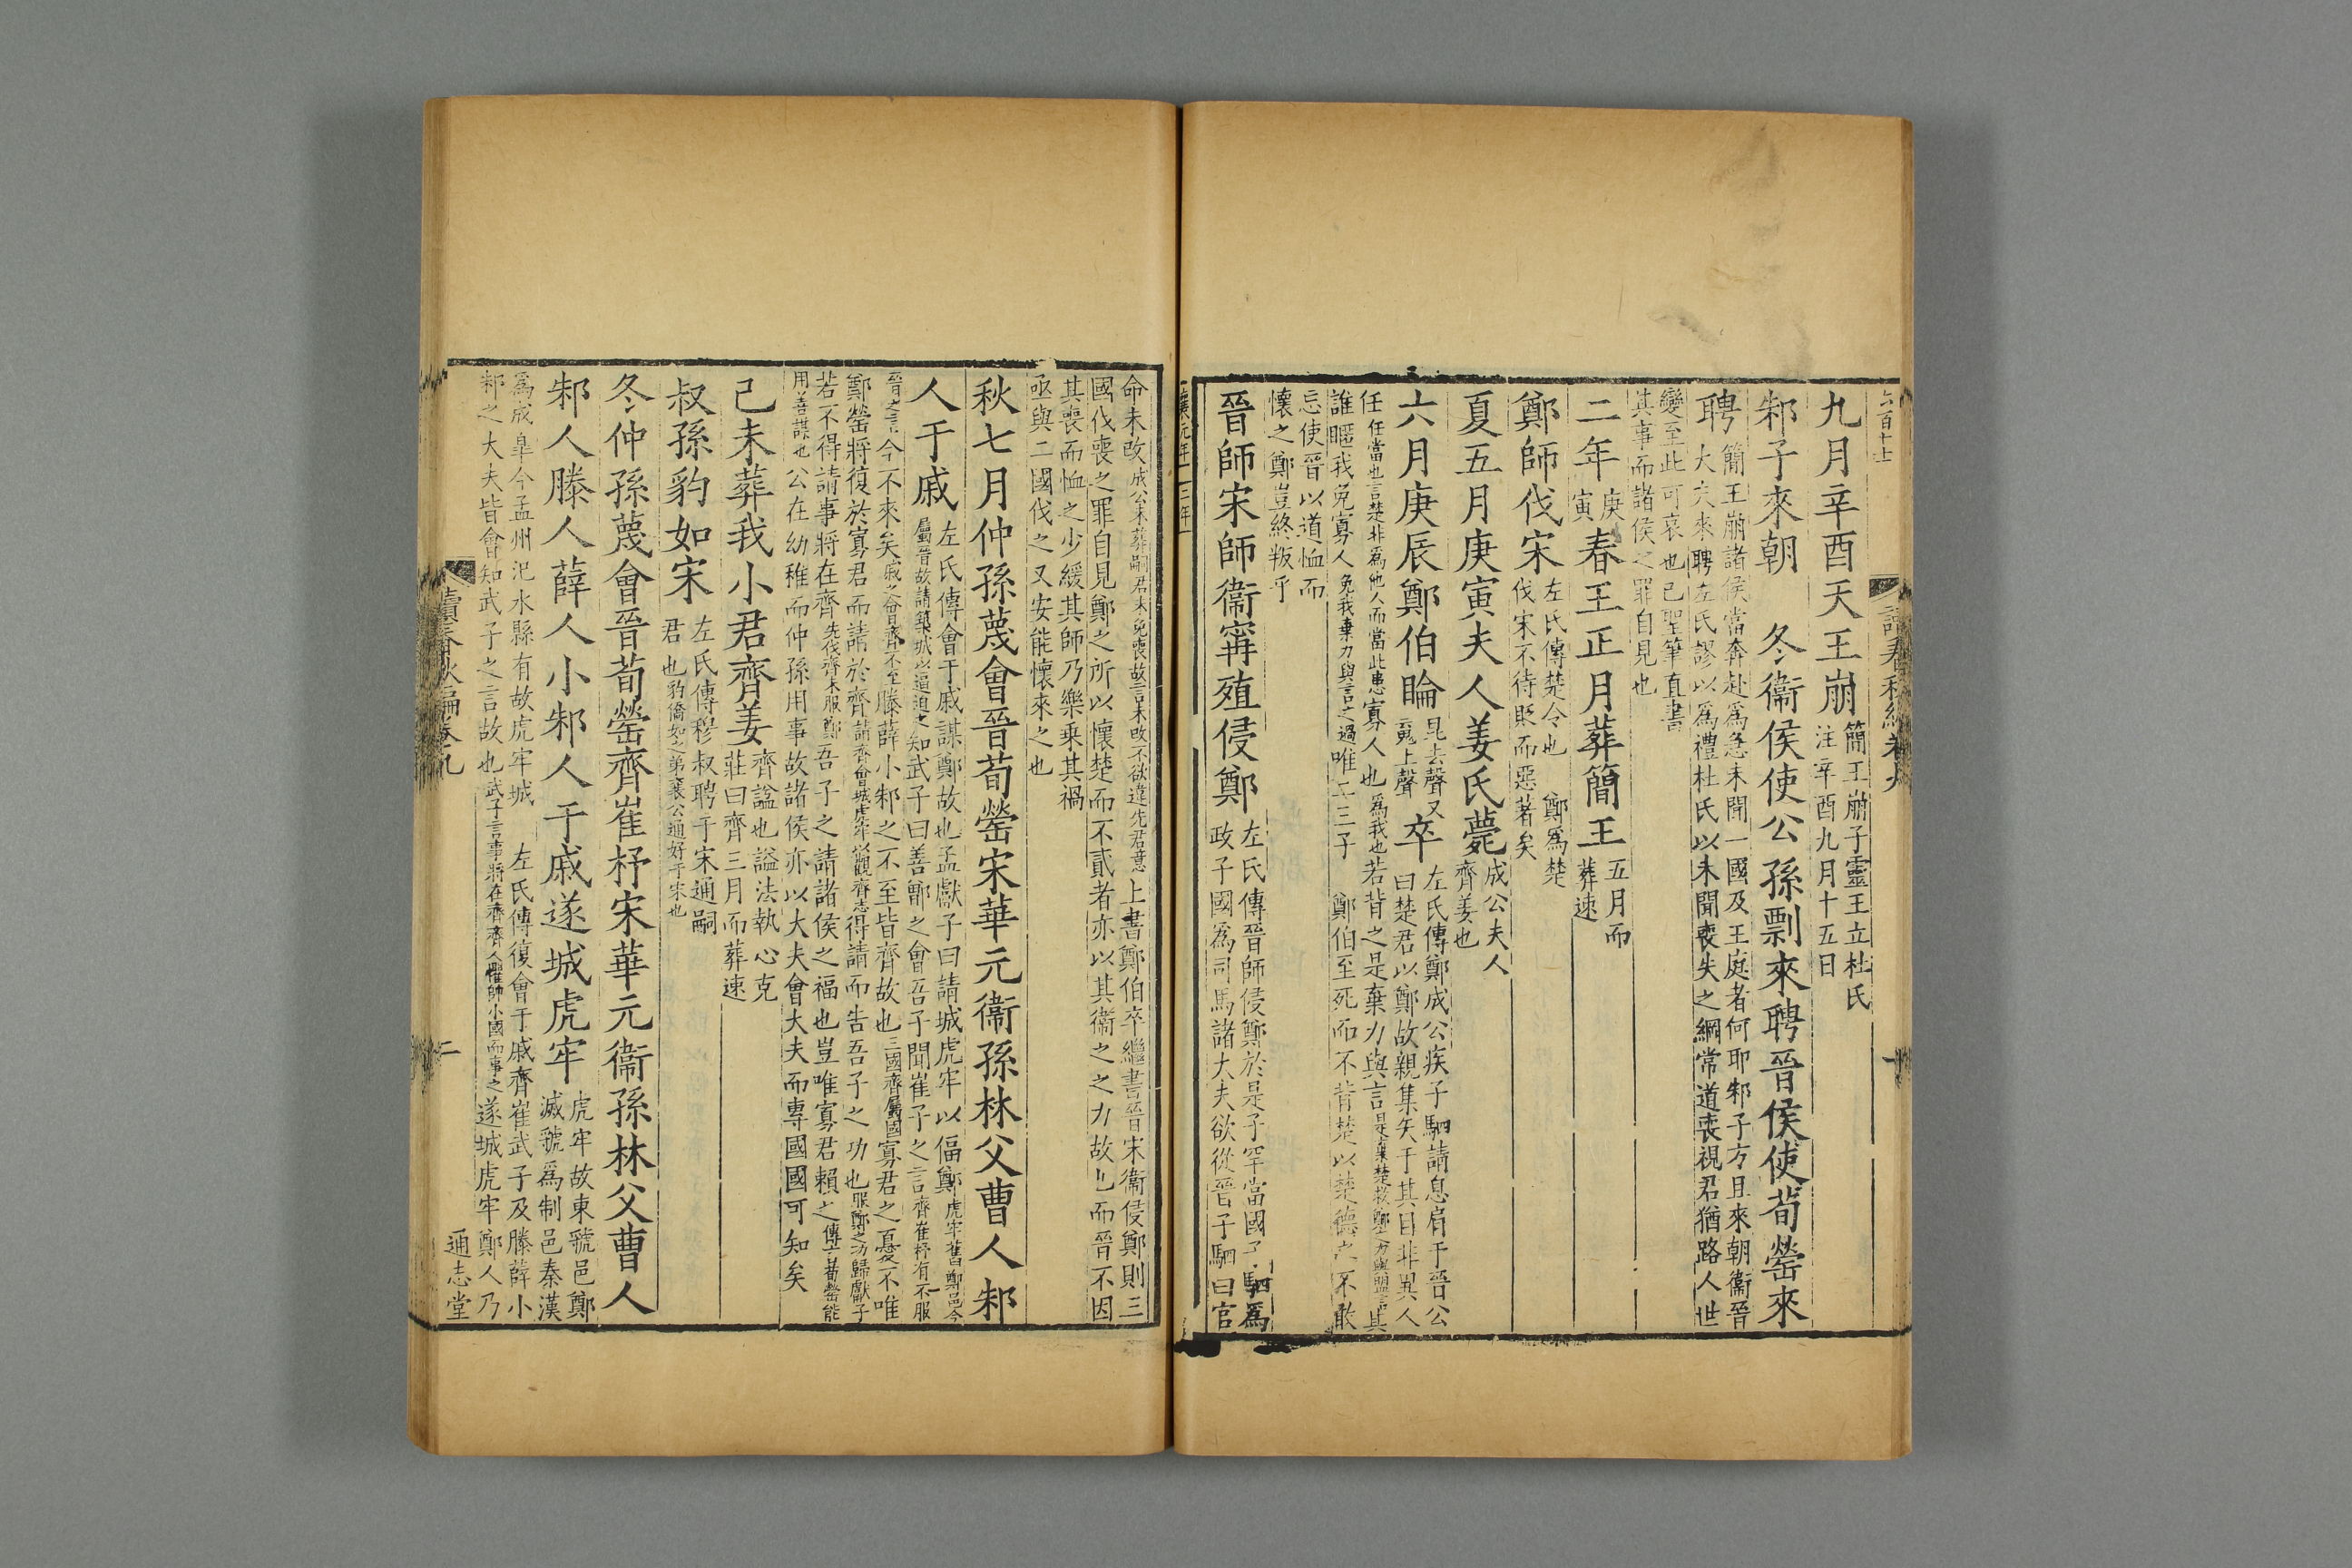 六百十七
讀春秋編卷九
九月辛酉天王崩
簡王崩子靈王立杜氏
注辛酉九月十五日
邾子來朝 冬衞侯使公孫剽來聘晉侯使荀罃來
聘
簡王崩諸侯當奔赴爲急未聞一國及王庭者何耶邾子方且來朝衞晉
大夫來聘左氏謬以爲禮杜氏以未聞喪失之綱常道喪視君猶路人世
變至此可哀也已聖筆直書
其事而諸侯之罪自見也
二年
庚
寅
春王正月葬簡王
五月而
葬速
鄭師伐宋
左氏傳楚令也 鄭爲楚
伐宋不待貶而惡著矣
夏五月庚寅夫人姜氏薨
成公夫人
齊姜也
六月庚辰鄭伯睔
昆去聲又
䰟上聲
卒
左氏傳鄭成公疾子駟請息肩于晉公
曰楚君以鄭故親集矢于其目非異人
任任當也言楚非爲他人而當此患寡人也爲我也若背之是棄力與言是棄楚救鄭之力與盟言其
誰暱我免寡人免我棄力與言之過唯二三子 鄭伯至死而不背楚以楚德之不敢
忘使晉以道恤而
懷之鄭豈終叛乎
晉師宋師衞甯殖侵鄭
左氏傳晉師侵鄭於是子罕當國子駟爲
政子國爲司馬諸大夫欲從晉子駟曰官
襄元年 二年
命未改成公未葬嗣君未免喪故言未改不欲違先君意上書鄭伯卒繼書晉宋衞侵鄭則三
國伐喪之罪自見鄭之所以懷楚而不貳者亦以其衞之之力故也而晉不因
其喪而恤之少緩其師乃樂乗其禍
亟與二國伐之又安能懷來之也
秋七月仲孫蔑會晉荀罃宋華元衞孫林父曹人邾
人于戚
左氏傳會于戚謀鄭故也孟獻子曰請城虎牢以偪鄭虎牢舊鄭邑今
屬晉故請築城以逼迫之知武子曰善鄫之會吾子聞崔子之言齊崔杼有不服
晉之言今不來矣戚之會齊不至滕薛小邾之不至皆齊故也三國齊屬國寡君之憂不唯
鄭罃將復於寡君而請於齊請齊會城虎牢以觀齊志得請而告吾子之功也服鄭之功歸獻子
若不得請事將在齊先伐齊未服鄭吾子之請諸侯之福也豈唯寡君賴之傳言荀罃能
用善謀也公在幼稚而仲孫用事故諸侯亦以大夫會大夫而專國國可知矣
己未葬我小君齊姜
齊諡也諡法執心克
莊曰齊三月而葬速
叔孫豹如宋
左氏傳穆叔聘于宋通嗣
君也豹僑如之弟襄公通好于宋也
冬仲孫蔑會晉荀罃齊崔杼宋華元衞孫林父曹人
邾人滕人薛人小邾人于戚遂城虎牢
虎牢故東虢邑鄭
滅虢爲制邑秦漢
爲成臯今孟州汜水縣有故虎牢城 左氏傳復會于戚齊崔武子及滕薛小
邾之大夫皆會知武子之言故也武子言事將在齊齊人懼帥小國而事之遂城虎牢鄭人乃
讀春秋編卷九
二
通志堂